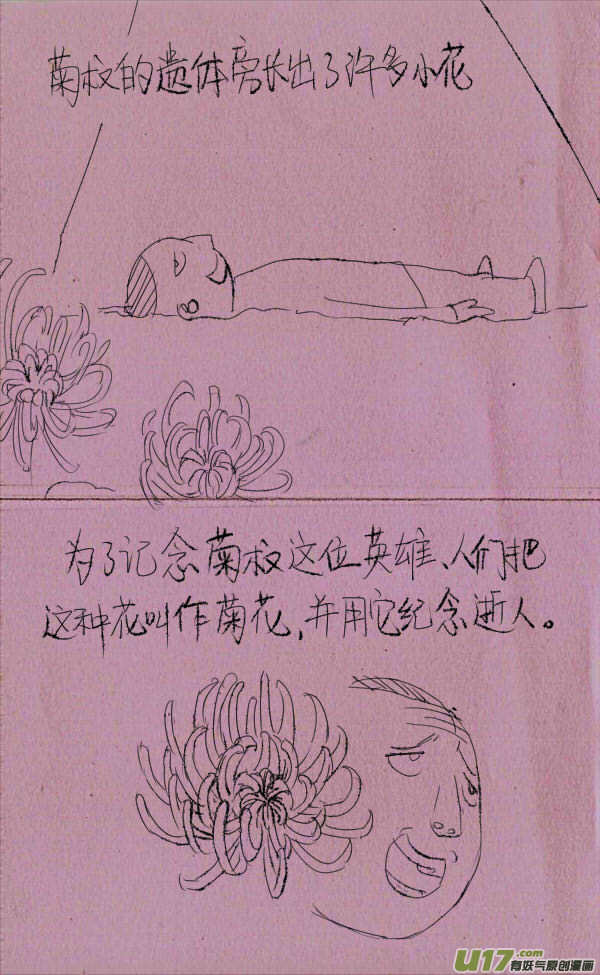 菊叔的遗体旁长出了许多小花
为了记念菊叔这位英雄、人们把
这种花叫作菊花，并用它纪念逝人。
U17.com
有妖气原创漫画